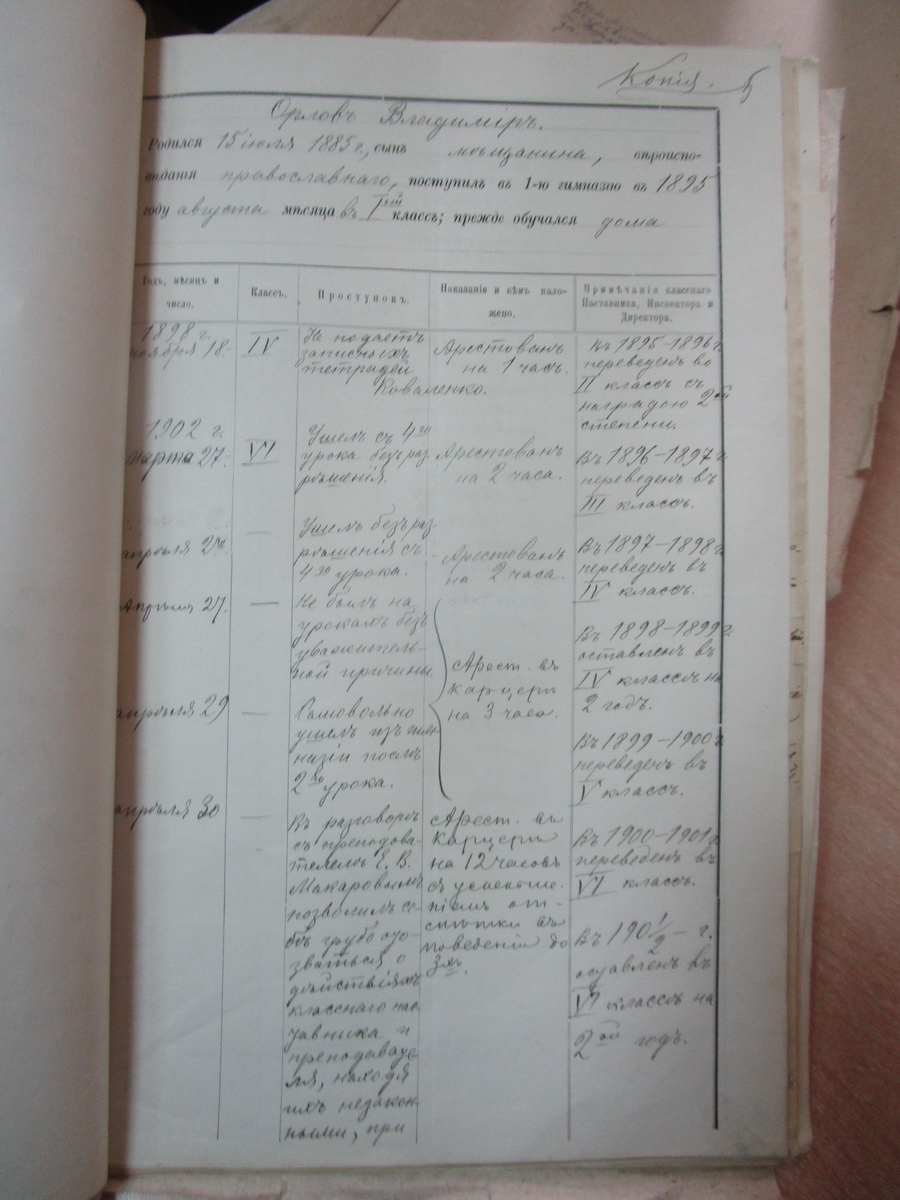 Копія.
Орловъ Владиміръ.
Родился 15 іюля 1885 г., сынъ мѣщанина, вѣроиспо-
вѣданія православнаго, поступилъ въ 1-ю гимназію въ 1895
году августа мѣсяца въ Iый классъ; прежде обучался дома
Годъ, мѣсяцъ и
число.
Классъ.
Проступокъ.
Наказаніе и кѣмъ нало-
жено.
Примѣчанія класснаго
Наставника, Инспектора и
Директора.
1898 г.
ноября 18
IV
Не подаетъ
записныхъ
тетрадей
Коваленко.
Арестованъ
на 1 часъ.
1902 г.
Марта 27.
VI
Ушелъ съ 4го
урока безъ раз
рѣшенія.
Арестованъ
на 2 часа.
апрѣля 27.
—
Ушелъ безъ раз
рѣшенія съ
4го урока.
Арестованъ
на 2 часа.
Апрѣля 27.
—
Не былъ на
урокахъ безъ
уважитель-
ной причины
апрѣля 29
—
Самовольно
ушелъ изъ гим
назіи послѣ
2го урока.
Арест. въ
карцеръ
на 3 часа.
апрѣля 30
—
Въ разговорѣ
съ преподова-
телемъ Е. В.
Макаровымъ
позволилъ се-
бѣ грубо ото-
зваться о
дѣйствіяхъ
класснаго нас
тавника и
преподавате
ля, находя
ихъ незакон-
ными, при
Арест. въ
карцеръ
на 12 часовъ
съ уменьше-
ніемъ от-
мѣтки въ
поведеніи до
3хъ.
Въ 1895-1896 г.
переведенъ во
II классъ съ
наградою 2ой
степени.
Въ 1896-1897 г.
переведенъ въ
III классъ.
Въ 1897-1898 г.
переведенъ въ
IV классъ.
Въ 1898-1899 г.
оставленъ въ
IV классѣ на
2 годъ.
Въ 1899-1900 г.
переведенъ въ
V классъ.
Въ 1900-1901 г.
переведенъ въ
VI классъ.
Въ 1901/2 - г.
оставленъ въ
VI классѣ на
2ой годъ.